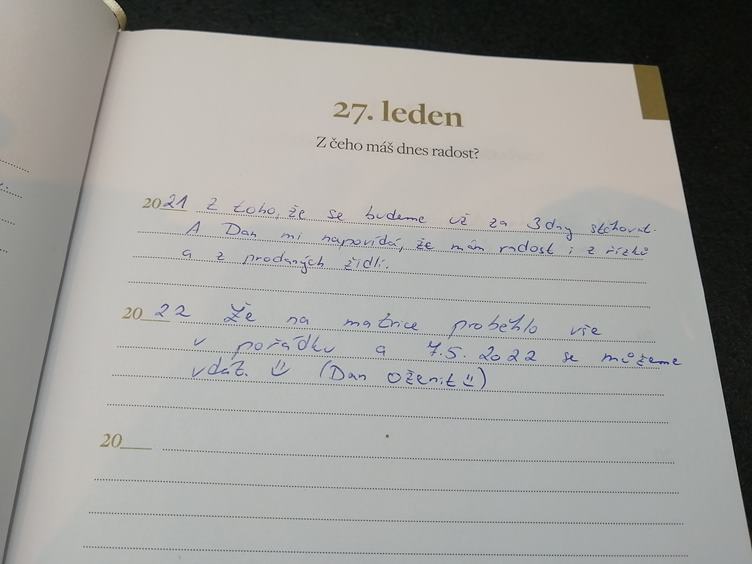 27. leden
Z čeho máš dnes radost?
2021 Z toho, že se budeme už za 3 dny stěhovat.
A Dan mi napovídá, že mám radost i z řízků
a z prodaných židlí.
2022 Že na matrice proběhlo vše
v pořádku a 7.5. 2022 se můžeme
vdát. :) (Dan oženit :))
20